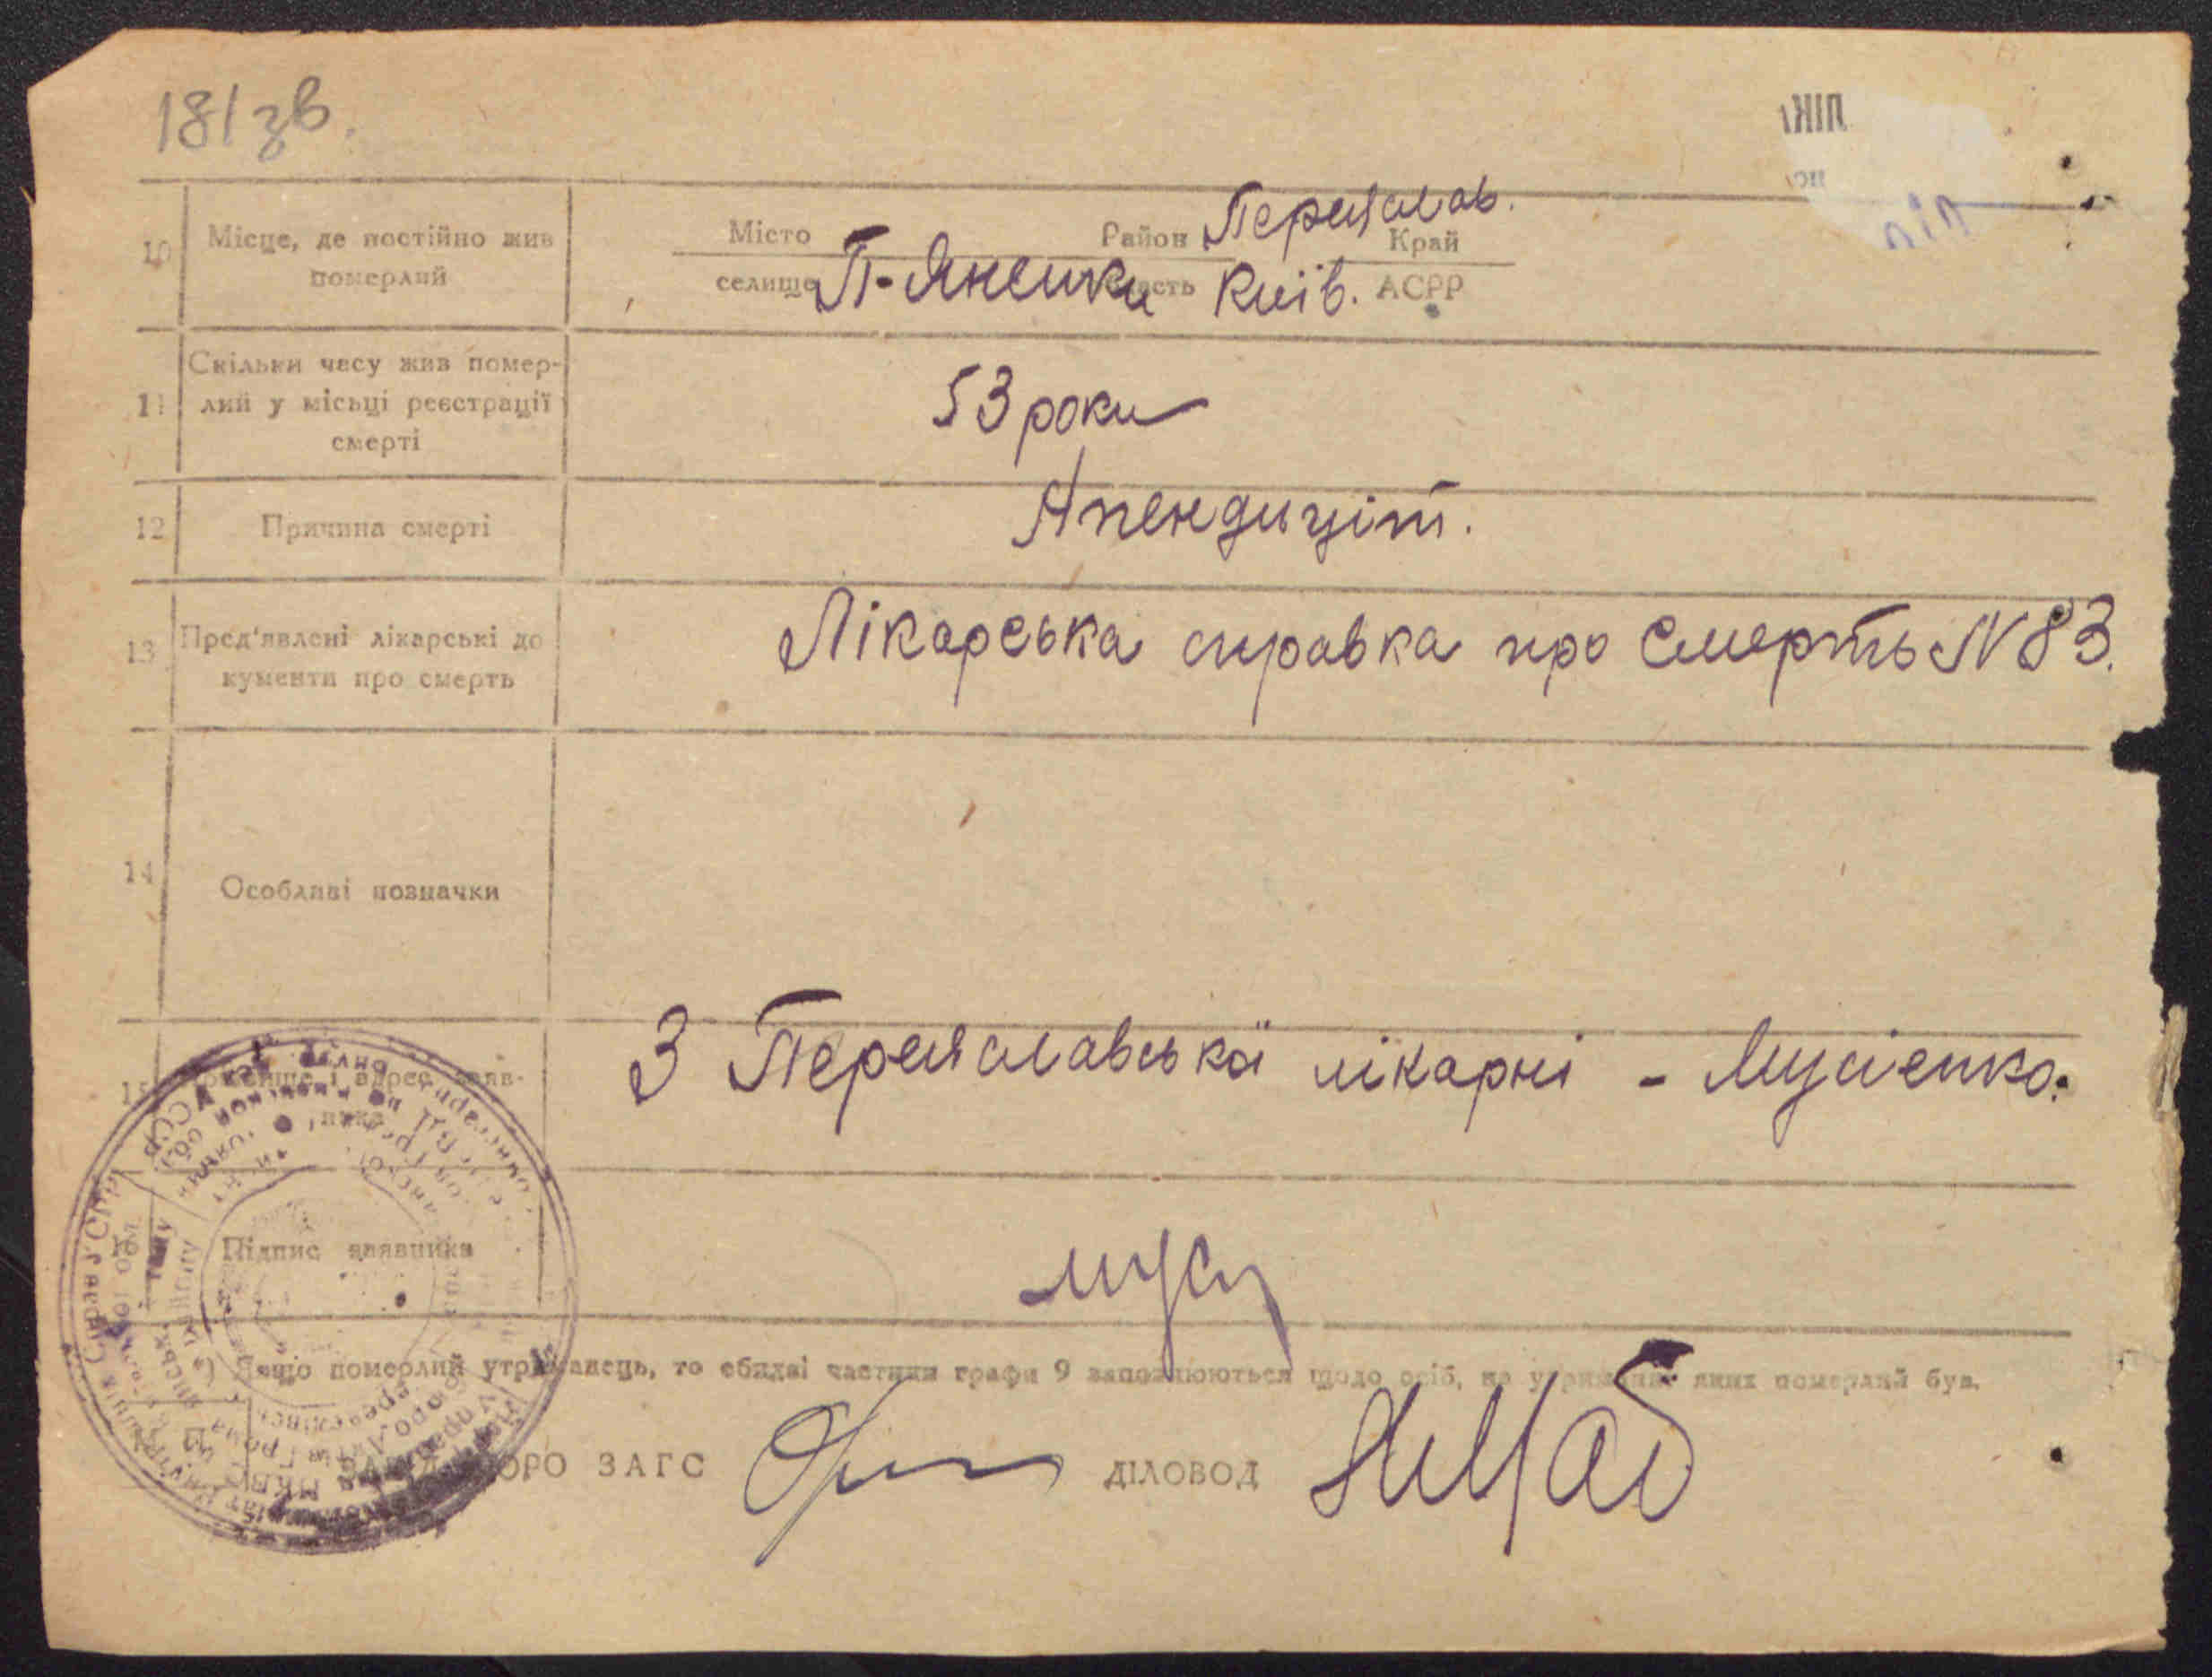 181 зв.
10 Місце, де постійно жив
померлий
Місто Район Переяслав. Край
селище П-Яненки область Київ. АСРР
11 Скільки часу жив помер-
лий у місьці реєстрації
смерті
53 роки
12 Причина смерті
Апендиціт.
13 Пред'явлені лікарські до
кументи про смерть
Лікарська справка про смерть N 83.
14 Особливі позначки
15 Прізвище і адрес заяв-
ника
З Переяславської лікарні - Мусієнко.
Підпис заявника
Мус
*) Якщо померлий утриманець, то обидві частини графи 9 заповнюються щодо осіб, на утриманні яких померлий був.
ЗАВІД. БЮРО ЗАГС ДІЛОВОД